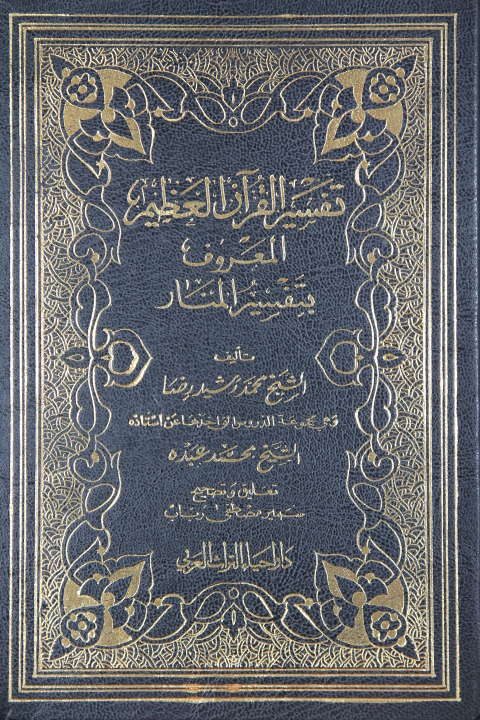 تفسير القرآن العظيم
المعروف
بتفسير المنار
تأليف
الشيخ محمد رشيد رضا
وهي مجموعة الدروس التي أخذها عن أستاذه
الشيخ محمد عبده
تعليق وتصحيح
سمير مصطفى رباب
دار إحياء التراث العربي